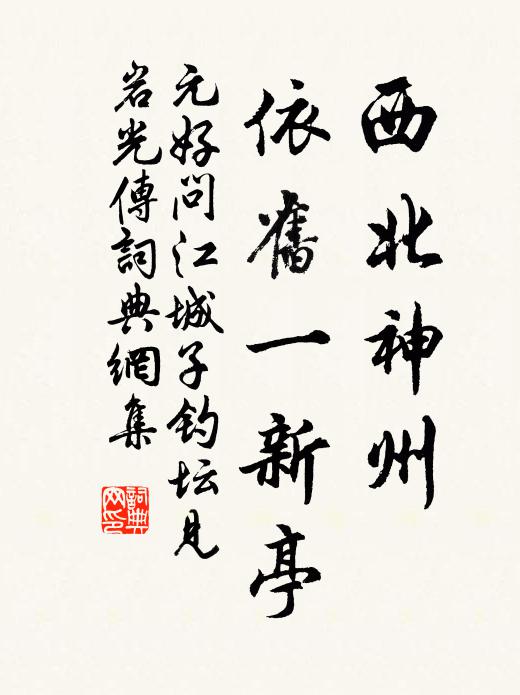 西北神州
依舊一新亭
元好問江城子钓坛見
岩光傳詞典網集
詞典
网印